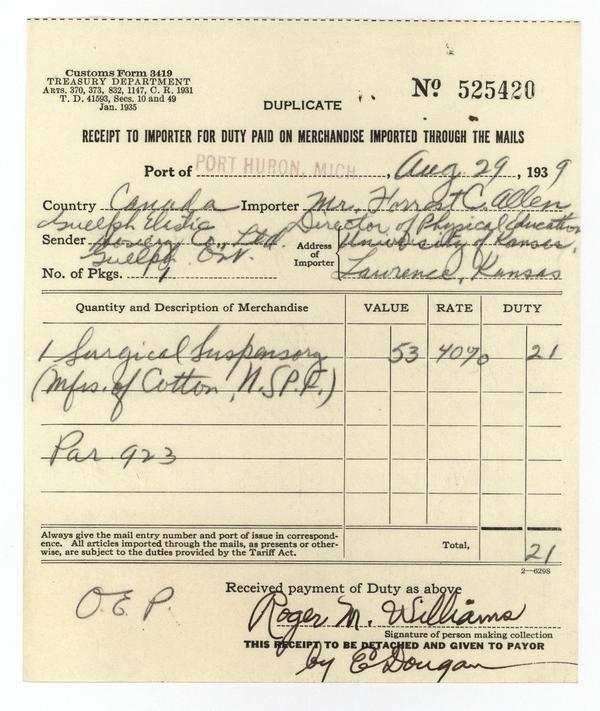 Customs Form 3419
TREASURY DEPARTMENT
ARTS. 370, 373, 832, 1147, C. R. 1931
T. D. 41593, SECS. 10 and 49
Jan. 1935
No 525420
DUPLICATE
RECEIPT TO IMPORTER FOR DUTY PAID ON MERCHANDISE IMPORTED THROUGH THE MAILS
Port of PORT HURON, MICH., Aug. 29, 1939
Country Canada Importer Mr. Forrest C. Allen
Guelph Elastic Director of Physical Education
Sender Hosiery Co., Ltd. Address of Importer University of Kansas,
Guelph Ont.
No. of Pkgs. 1 Lawrence, Kansas
Quantity and Description of Merchandise VALUE RATE DUTY
1 Surgical Suspensory 53 40% 21
(Mfrs. of Cotton, N.S.P.F.)
Par 923
Always give the mail entry number and port of issue in correspond-
ence. All articles imported through the mails, as presents or other-
wise, are subject to the duties provided by the Tariff Act.
Total, 21
2—6298
O.E.P.
Received payment of Duty as above
Roger M. Williams
Signature of person making collection
THIS RECEIPT TO BE DETACHED AND GIVEN TO PAYOR
by E Dougan